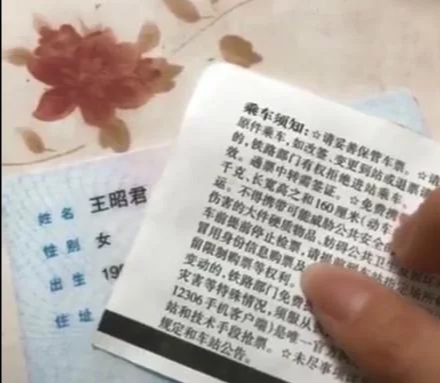 乘车须知:☆请妥善保管车票。☆请
原件乘车,如改签、变更到站或退票请
的,铁路部门有权拒绝进站乘车。
效。通票中转需签证。☆免费携
千克,长宽高之和160厘米(动车
运。不得携带可能威胁公共安全的
伤害的大件硬质物品、妨碍公共卫生
车前提前停止检票,请
冒用身份信息购票及
留限制购票等权利。
变动的,铁路部门免费
灾害等特殊情况,须服从
12306手机客户端)是唯一官方
站和技术手段抢票。☆未尽事
规定和车站公告。
姓名 王昭君
性别 女
出生 199
住址